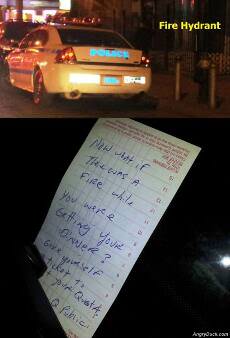 Fire Hydrant
POLICE
Now what if
There was A
Fire while
You were
Getting Your
Dinner?
Give Yourself
Ticket to
Your Quota
Q Public.
AngryDuck.com